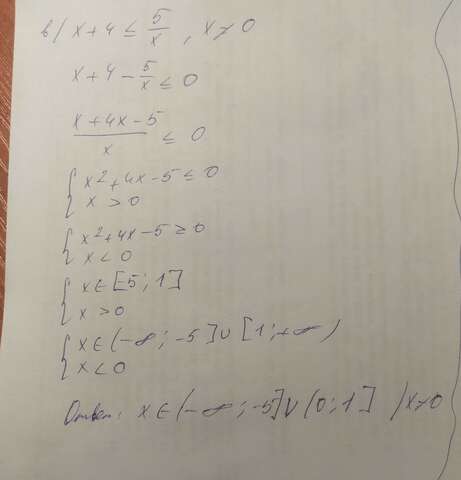 в) x+4 ≤ 5/x , x≠0
x+4 - 5/x ≤ 0
(x+4x-5)/x ≤ 0
{ x²+4x-5 ≤ 0
x > 0
{ x²+4x-5 ≥ 0
x < 0
{ x∈[5; 1]
x > 0
{ x∈(-∞; -5]∪[1; +∞)
x < 0
Ответ: x∈(-∞; -5]∪(0; 1] /x≠0